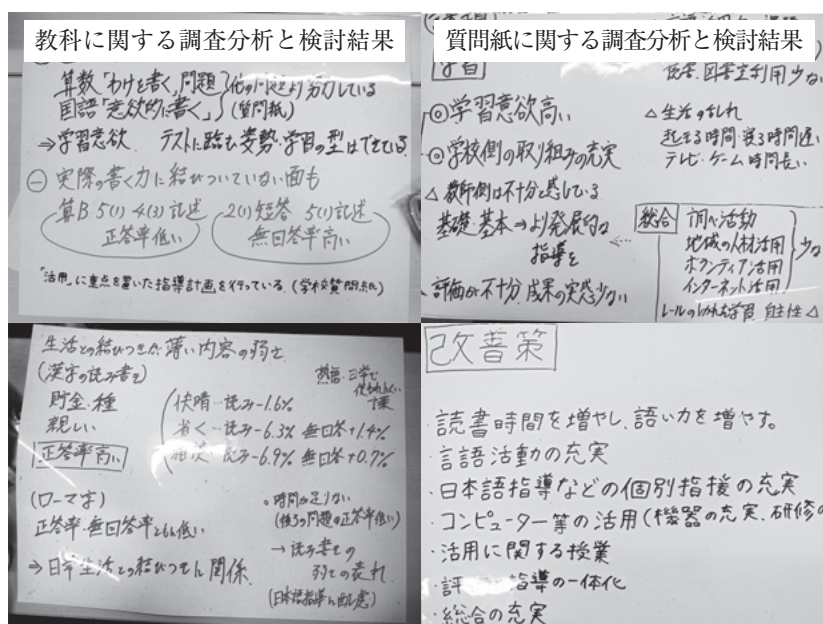 教科に関する調査分析と検討結果
算数「わけを書く」問題
国語「意欲的に書く」
他の問題より努力している
(質問紙)
⇒学習意欲 テストに臨む姿勢・学習の型はできている
㊀ 実際の書く力に結びついていない面も
算B 5(1) 4(3) 記述
正答率低い
2(1)短答 5(1)記述
無回答率高い
「活用」に重点を置いた指導計画を行っている。(学校質問紙)
質問紙に関する調査分析と検討結果
学習
◎学習意欲高い
◎学校側の取り組みの充実
△教師側は不十分と感じている
基礎・基本⇒より発展的な
指導を
評価が不十分 成果の実感少ない
△生活の乱れ
起きる時間・寝る時間遅い
テレビ・ゲーム時間長い
総合
調べ活動
地域の人材活用
ボランティア活用
インターネット活用
少な
レールのしかれた学習 自主性△
生活との結びつきが薄い内容の弱さ
(漢字の読み書き)
貯金・種
親しい
正答率高い
熟語・日常で
使われにくい
言葉
快晴…読み-1.6%
省く…読み-6.3% 無回答+1.4%
相談…読み-6.9% 無回答+0.7%
(ローマ字)
正答率・無回答率ともに低い
⇒日常生活との結びつきに関係
・時間が足りない
(後ろの問題の正答率低い)
→読み書きの
弱さの表れ
(日本語指導に配慮)
改善策
・読書時間を増やし、語い力を増やす。
・言語活動の充実
・日本語指導などの個別指援の充実
・コンピューター等の活用(機器の充実、研修の
・活用に関する授業
・評 指導の一体化
・総合の充実